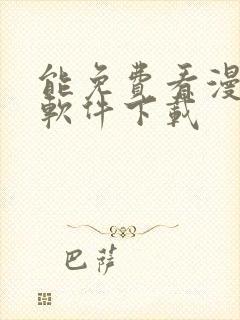 能免費看漫
軟件下載
巴薩